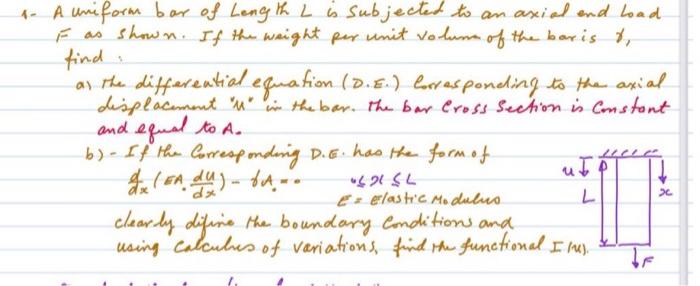 1- A uniform bar of Length L is subjected to an axial end Load
F as shown. If the weight per unit volume of the bar is γ,
find :
a) the differential equation (D.E.) Corresponding to the axial
displacement "u" in the bar. The bar Cross Section is Constant
and equal to A.
b)- If the Corresponding D.E. has the form of
d/dx (EA du/dx) - γA = 0 0 ≤ x ≤ L
E = Elastic Modulus
clearly difine the boundary Conditions and
using Calculus of variations, find the functional I(u).
u
L
x
F